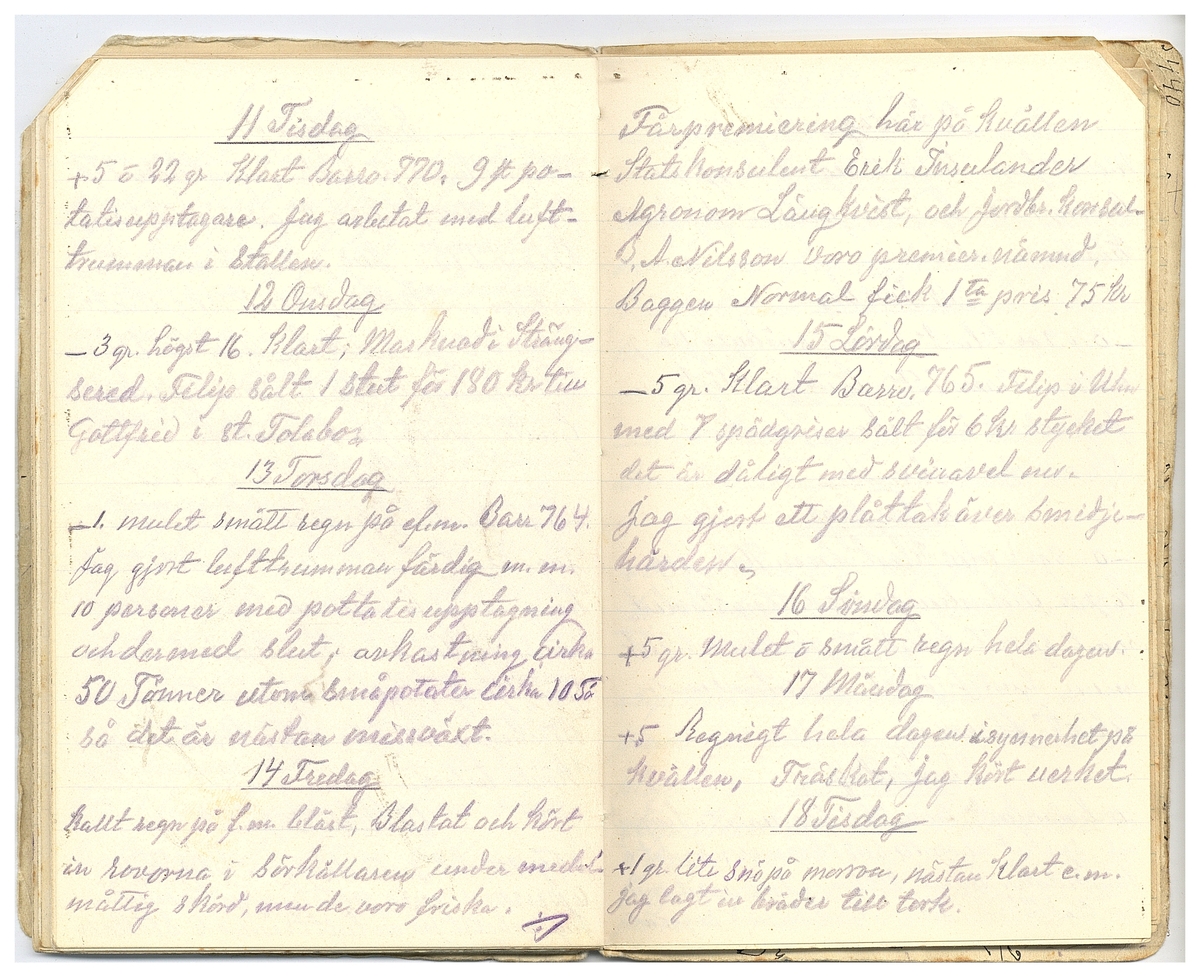 11 Tisdag
+5 o 22 gr Klart Barro. 770. 9 st po-
tatisupptagare. Jag arbetat med luft-
trumman i Stallen.
12 Onsdag
-3 gr. högst 16. Klart; Marknad i Sträng-
sered. Filip sålt 1 stut för 180 Kr till
Gottfrid i st. Tolabo
13 Torsdag
-1. mulet smått regn på ef.m. Barr 764.
Jag gjort lufttrumman färdig m. m.
10 personer med pottatisupptagning
och dermed slut, avkastning cirka
50 Tönner utom småpotater cirka 10 Tö
så det är nästan missväxt.
14 Fredag
Kallt regn på f.m. blåst, Blastat och kört
in rovorna i sörkällaren under medel-
måttig skörd, men de voro friska.
Fårpremiering här på kvällen
Statskonsulent Erik Insulander
Agronom Långkvist, och jordbr. konsul.
B. A. Nilsson voro premier. nämnd.
Baggen Normal fick 1ta pris 75 Kr
15 Lördag
-5 gr. Klart Barro. 765. Filip i Ulm
med 7 spädgrisar sålt för 6 Kr stycket
det är dåligt med svinavel nu.
Jag gjort ett plåttak över smidje-
härden.
16 Söndag
+5 gr. Mulet o smått regn hela dagen.
17 Måndag
+5 Regnigt hela dagen isynnerhet på
kvällen, Tråskat, jag kört verket.
18 Tisdag
+1 gr. lite snö på morron, nästan Klart e.m.
jag lagt in bräder till tork.